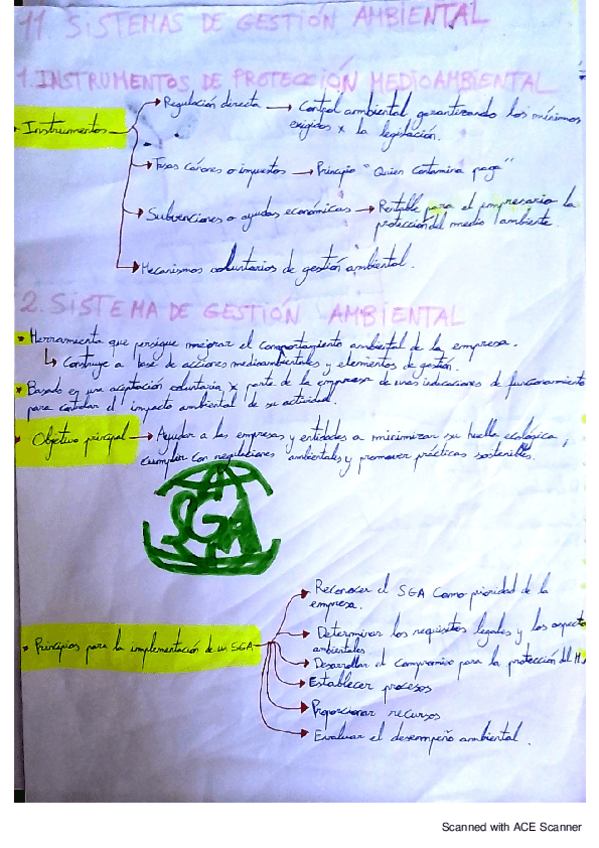 11. SISTEMAS DE GESTIÓN AMBIENTAL
1. INSTRUMENTOS DE PROTECCIÓN MEDIOAMBIENTAL
Instrumentos
Regulación directa → Control ambiental garantizando los mínimos
exigidos x la legislación.
Tasas cánones o impuestos → Principio "Quien contamina paga"
Subvenciones o ayudas económicas → Rentable para el empresario la
protección del medio ambiente
Mecanismos voluntarios de gestión ambiental.
2. SISTEMA DE GESTIÓN AMBIENTAL
Herramienta que persigue mejorar el comportamiento ambiental de la empresa.
↳ Construye a base de acciones medioambientales y elementos de gestión.
Basado en una aceptación voluntaria x parte de la empresa de unas indicaciones de funcionamiento
para controlar el impacto ambiental de su actividad.
Objetivo pricipal → Ayudar a las empresas y entidades a minimizar su huella ecológica,
cumplir con regulaciones ambientales y promover prácticas sostenibles.
SGA
Principios para la implementación de un SGA
Reconocer el SGA como prioridad de la
empresa.
Determinar los requisitos legales y los aspecto
ambientales
Desarrollar el compromiso para la protección del M.
Establecer procesos
Proporcionar recursos
Evaluar el desempeño ambiental.
Scanned with ACE Scanner